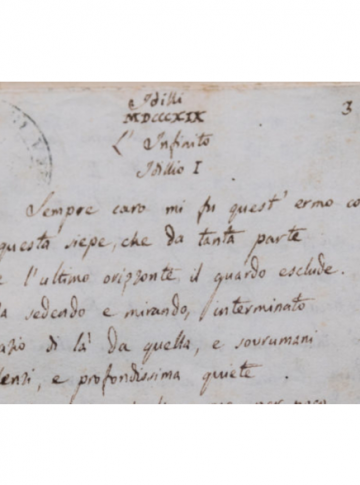 Idilli
MDCCCXIX
3
L'Infinito
Idillio I
Sempre caro mi fu quest' ermo co
questa siepe, che da tanta parte
l'ultimo orizzonte il guardo esclude.
sedendo e mirando, interminato
azio di là da quella, e sovrumani
lenzi, e profondissima quiete